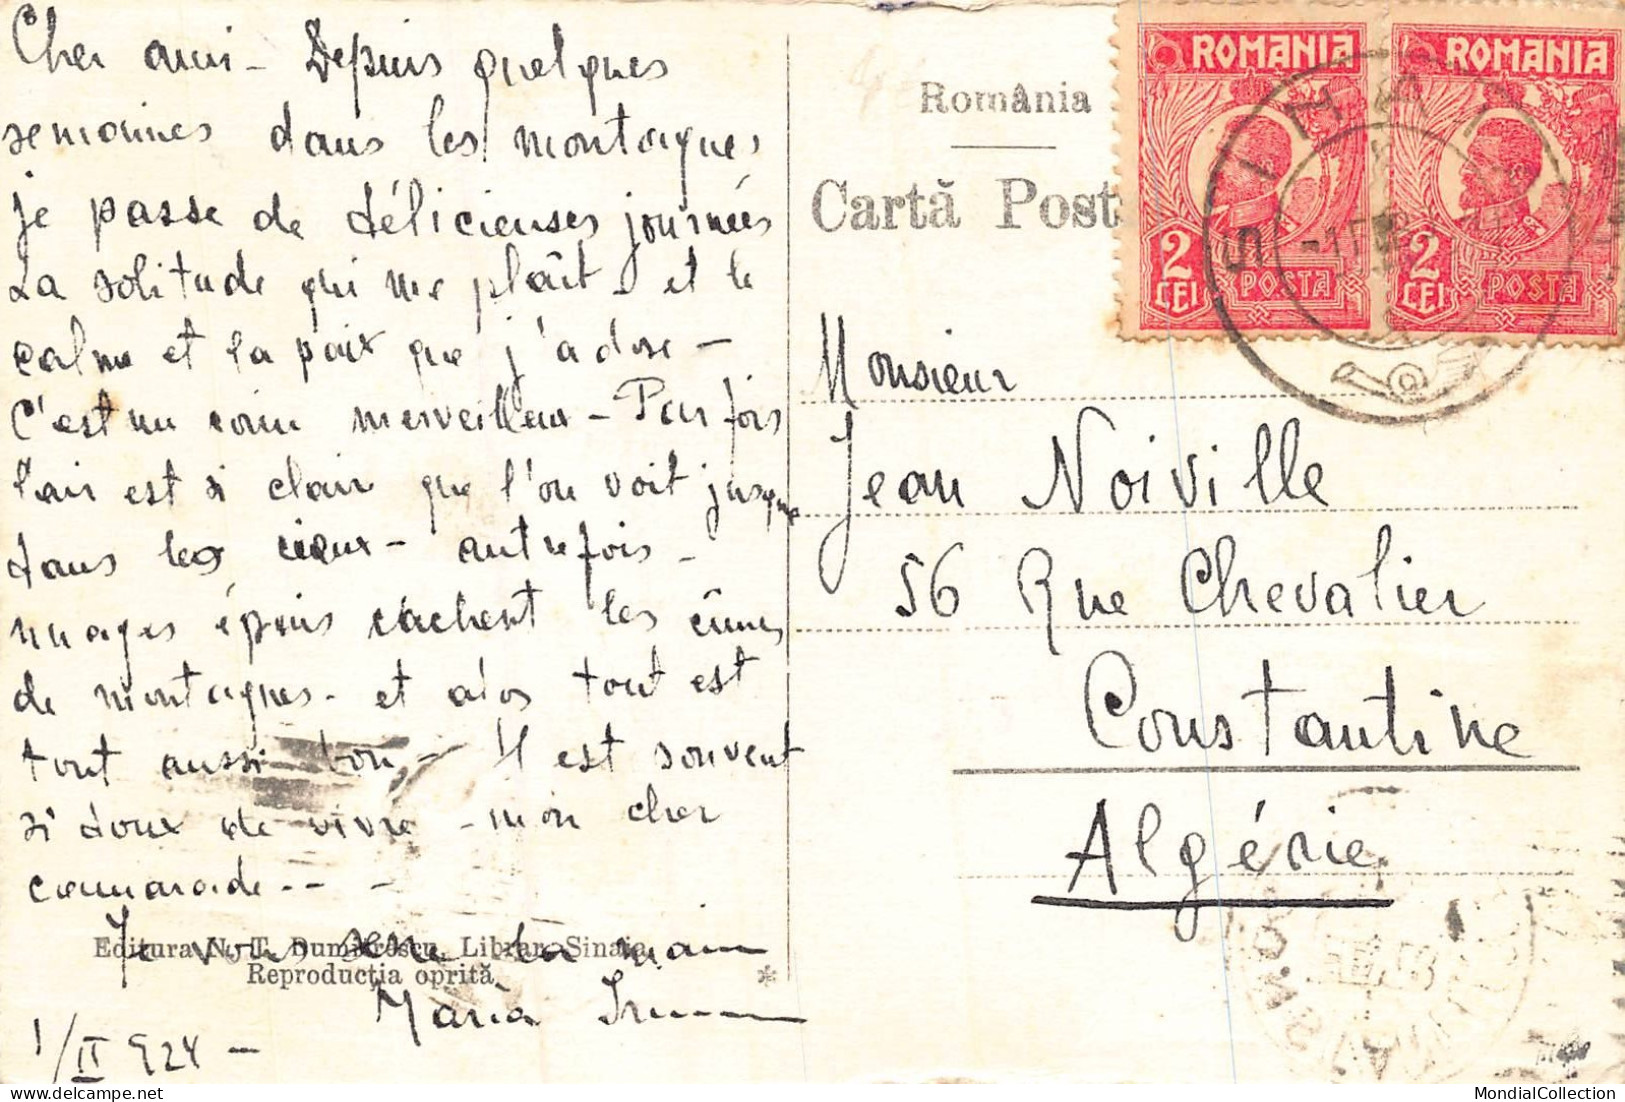 Cher ami - Depuis quelques
semaines dans les montagnes
je passe de délicieuses journées
La solitude qui me plaît - et le
calme et la paix que j'adore -
C'est un coin merveilleux - Parfois
l'air est si clair que l'on voit jusque
dans les cieux - autrefois -
nuages épais cachent les cimes
de montagnes - et alos tout est
tout aussi bon - Il est souvent
si doux de vivre - mon cher
camarade - - -
Je vous serre la main
Maria
1/II 924 -
Editura N. T. Dumitrescu, Librar, Sinaia
Reproducția oprită
*
România
Cartă Post
ROMANIA
2 LEI POSTA
ROMANIA
2 LEI POSTA
SINAIA
Monsieur
Jean Noiville
56 Rue Chevalier
Constantine
Algérie
MondialCollection